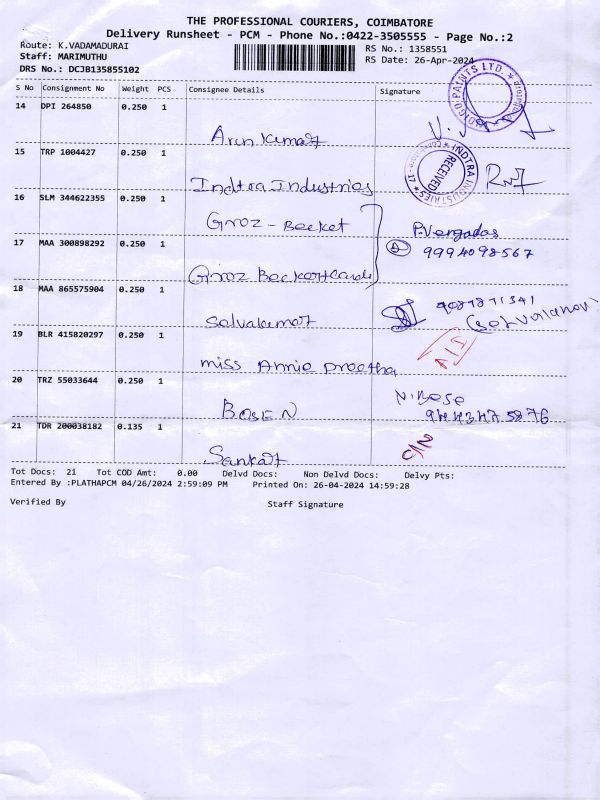 THE PROFESSIONAL COURIERS, COIMBATORE
Delivery Runsheet - PCM - Phone No.:0422-3505555 - Page No.:2
Route: K.VADAMADURAI
RS No.: 1358551
Staff: MARIMUTHU
RS Date: 26-Apr-2024
DRS No.: DCJB135855102
S No Consignment No Weight PCS Consignee Details Signature
14 DPI 264850 0.250 1
INDIGO PAINTS LTD.
Arunkumar
15 TRP 1004427 0.250 1
INDTRA INDUSTRIES
RECEIVED
Indtra Industries
16 SLM 344622355 0.250 1
Groz - Becket
P.Vengadas
17 MAA 300898292 0.250 1
9994098567
Groz Beckert cardi
18 MAA 865575904 0.250 1
Selvakumar
19 BLR 415820297 0.250 1
miss Annie preetha
20 TRZ 55033644 0.250 1
N.Bose
BOSE N
21 TDR 200038182 0.135 1
Sankar
Tot Docs: 21 Tot COD Amt: 0.00 Delvd Docs: Non Delvd Docs: Delvy Pts:
Entered By :PLATHAPCM 04/26/2024 2:59:09 PM Printed On: 26-04-2024 14:59:28
Verified By Staff Signature